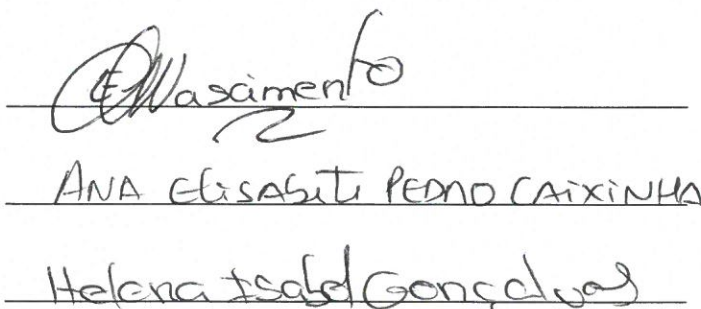 Nascimento
ANA ELiSABETE PEDRO CAiXiNHA
Helena Isabel Gonçalves